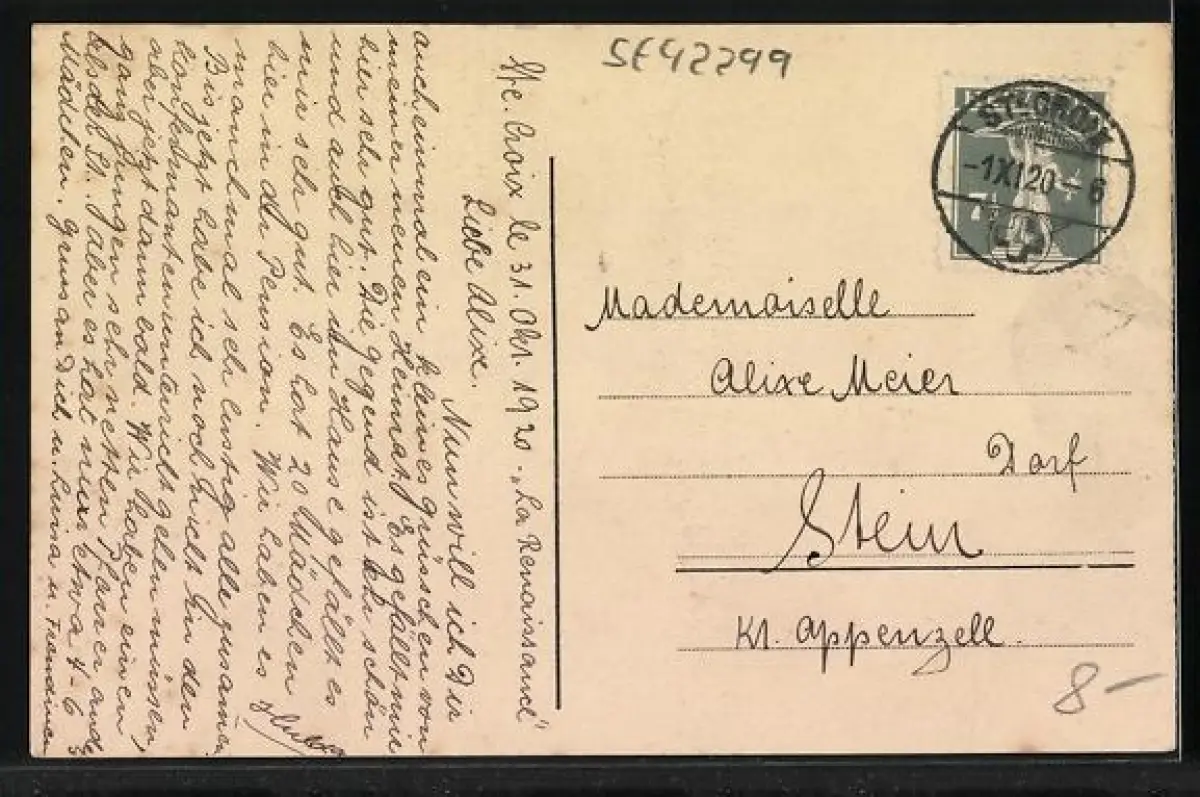 SE42299
Ste. Croix le 31. Okt. 1920 „La Renaissance"
Liebe Alixe.
Nun will ich Dir
auch einmal ein kleines Grüsschen von
meiner neuen Heimat. Es gefällt mir
hier sehr gut. Die Gegend ist sehr schön
und auch hier im Hause gefällt es
mir sehr gut. Es hat 20 Mädchen
hier in der Pension. Wir haben es
manchmal sehr lustig alle zusammen
Bis jetzt habe ich noch nicht in den
Konfirmantenunterricht gehen müssen,
aber jetzt dann bald. Wir haben einen
ganz jungen sehr netten Pfarrer
als der St. Aber es hat nur etwa 4-6
Mädchen. Gruss an Dich u. Luisa u.
STE CROIX
-1.XI.20-6
7½
Mademoiselle
Alixe Meier
Dorf
Stein
Kt. Appenzell.
8-